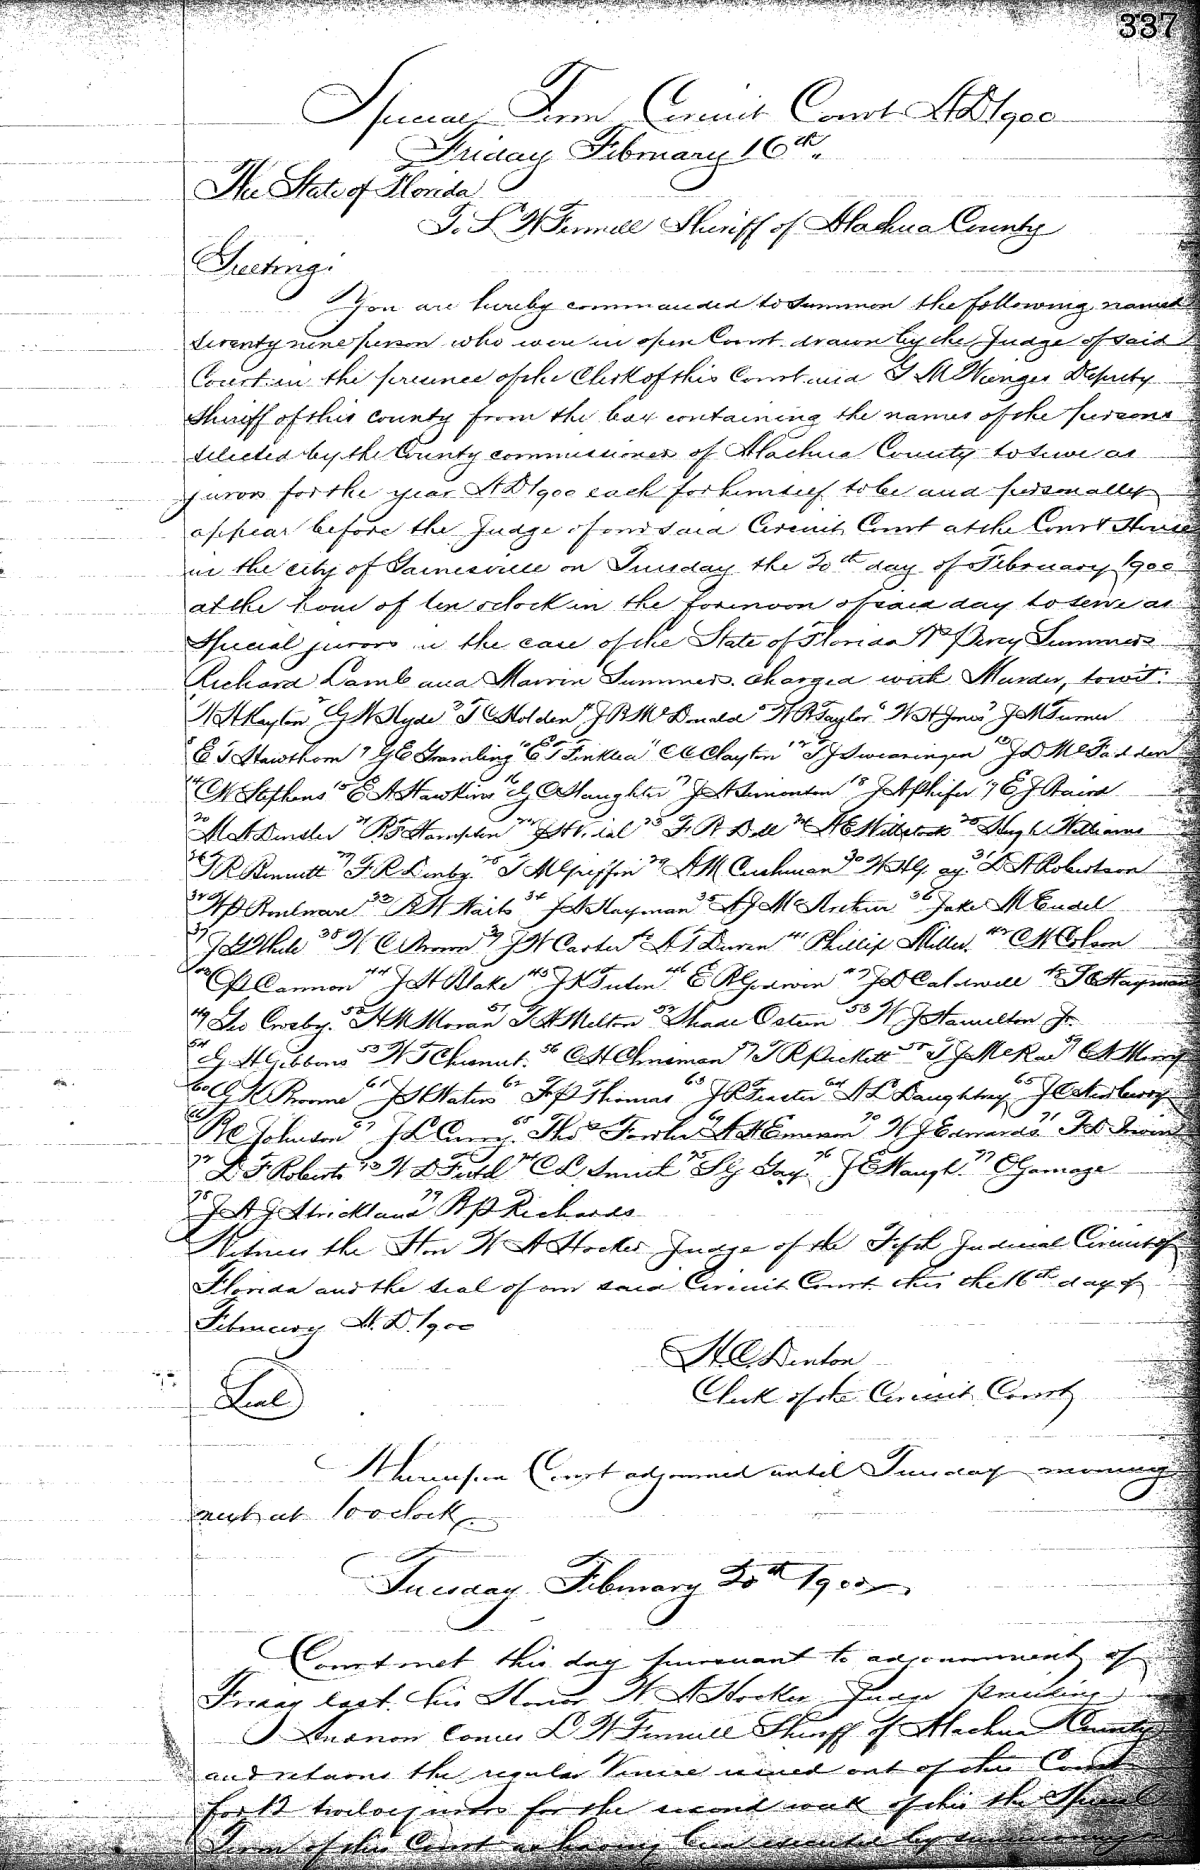 337
Special Term Circuit Court AD 1900
Friday February 16th.
The State of Florida
To L W Fennell Sheriff of Alachua County
Greeting:
You are hereby commanded to summon the following named
seventy nine person who were in open Court drawn by the Judge of said
Court in the presence of the Clerk of this Court and S M Wienges Deputy
Sheriff of this county from the box containing the names of the persons
selected by the County commissioners of Alachua County to serve as
jurors for the year AD 1900 each for himself to be and personally
appear before the Judge of our said Circuit Court at the Court House
in the city of Gainesville on Tuesday the 20th day of February 1900
at the hour of ten oclock in the forenoon of said day to serve as
Special jurors in the case of the State of Florida Vs Percy Summers
Richard Lamb and Marvin Summers. charged with Murder, towit:
W H Kayton 2 G W Hyde 3 T C Holden 4 J B McDonald 5 W R Taylor 6 W H Jones 7 J M Turner
8 E T Hawthorn 9 G E Gramling 10 E T Finklea 11 C C Clayton 12 T J Swearingen 13 J D McFadden
14 C W Stephens 15 E A Hawkins 16 G C Slaughter 17 J A Simonton 18 J A Phifer 19 E J Baird
20 M A Dinsler 21 B F Hampton 22 J H 23 F R Dell 24 25 Hugh Williams
26 T R Bennett 27 F R 28 T M Griffin 29 A M Cushman 30 31 L A Robertson
32 W P Boulware 33 R H Waits 34 J A Hayman 35 A J McArthur 36 Jake M Endel
37 J G White 38 W C Brown 39 J W Carter 40 A T Duren 41 Phillip Miller. 42 C M Colson
43 C P Cannon 44 J H Blake 45 J K Tuten 46 E R Godwin 47 J D Caldwell 48 T C Hayman
49 Geo Crosby. 50 H M Moran 51 T H Melton 52 Shade Osteen 53 W J Hamilton Jr.
54 G H Gibbons 55 W T Chesnut. 56 C H Chrisman 57 T R Pickett 58 T J McRae 59
60 G K Broome 61 J H Waters 62 F P Thomas 63 J R 64 A L Daughtry 65
66 R C Johnson 67 J L Curry 68 Thos Fowler 69 A H Emerson 70 W J Edwards 71 F D Irwin
72 L F Roberts 73 W D Field 74 C L Smith 75 S G Gay. 76 J E Waugh. 77 C Gamage
78 J A J Strickland 79 R P Richards
Witness the Hon W A Hocker Judge of the Fifth Judicial Circuit of
Florida and the seal of our said Circuit Court this the 16th day of
February A.D. 1900
H C Denton
Seal
Clerk of the Circuit Court
Whereupon Court adjourned until Tuesday morning
next at 10 oclock
Tuesday February 20th 1900
Court met this day pursuant to adjournment of
Friday last. his Honor W A Hocker Judge Presiding
Anon comes L W Fennell Sheriff of Alachua County
and returns the regular Venire issued out of this Court
for 12 twelve jurors for the second week of this the Special
Term of this Court as having been executed by summoning